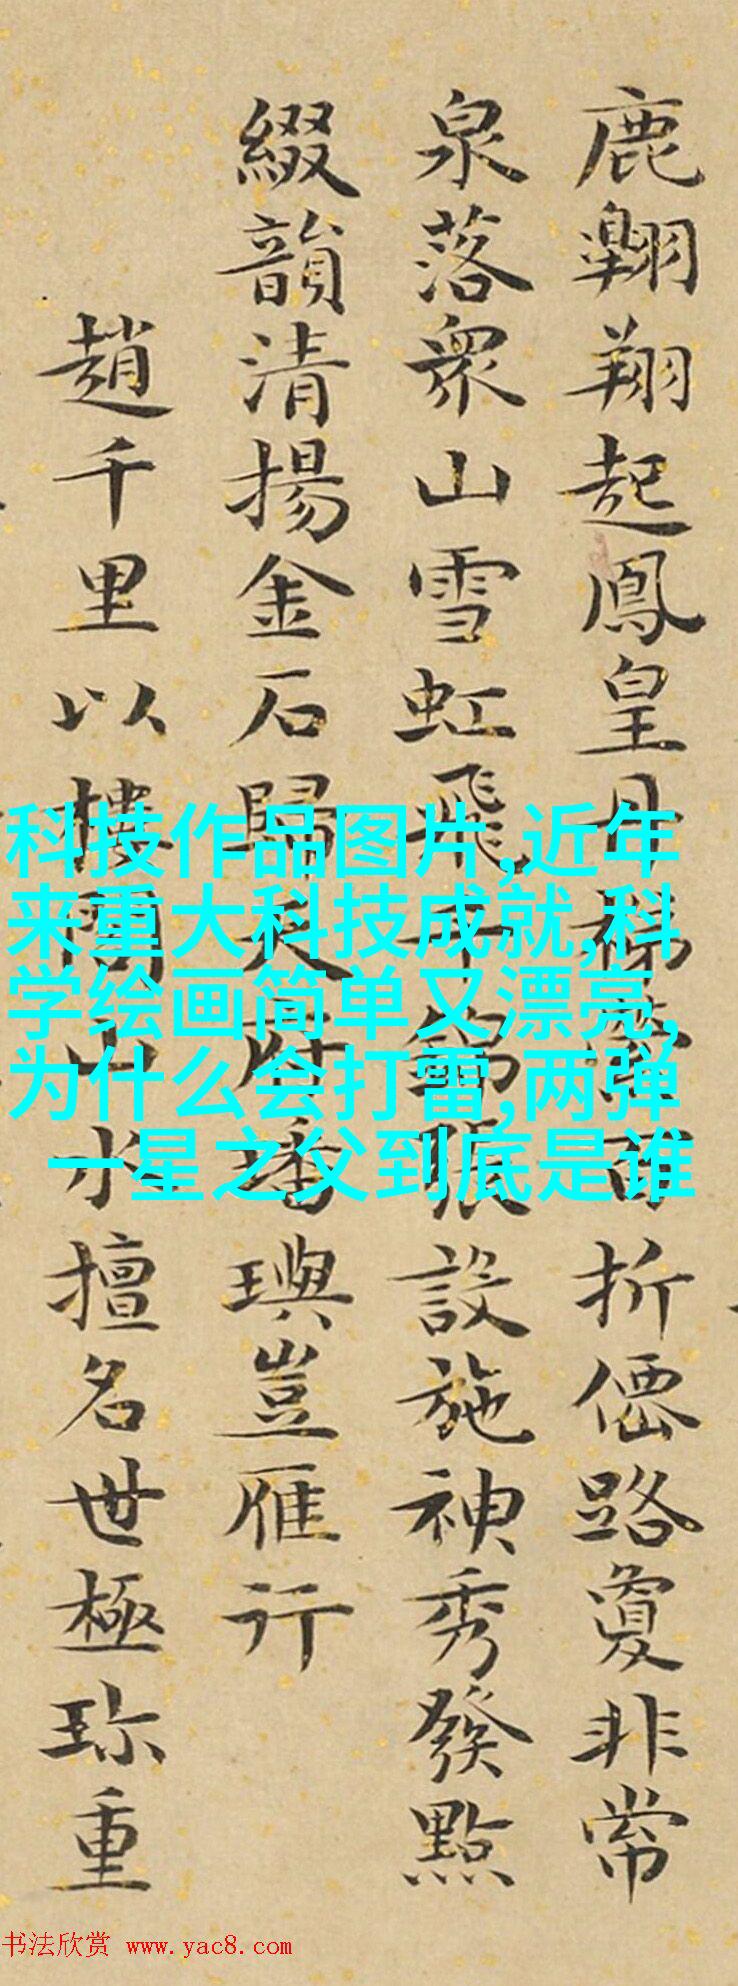 鹿翱翔起鳳皇丹梯
百折僊路敻非常
泉落衆山雪虹飛
錦張設施神秀發點
綴韻清揚金石歸天府
璠璵豈雁行
趙千里以樓閣山水擅名世極珎重
科技作品图片,近年
来重大科技成就,科
学绘画简单又漂亮,
为什么会打雷,两弹
一星之父到底是谁
书法欣赏 www.yac8.com